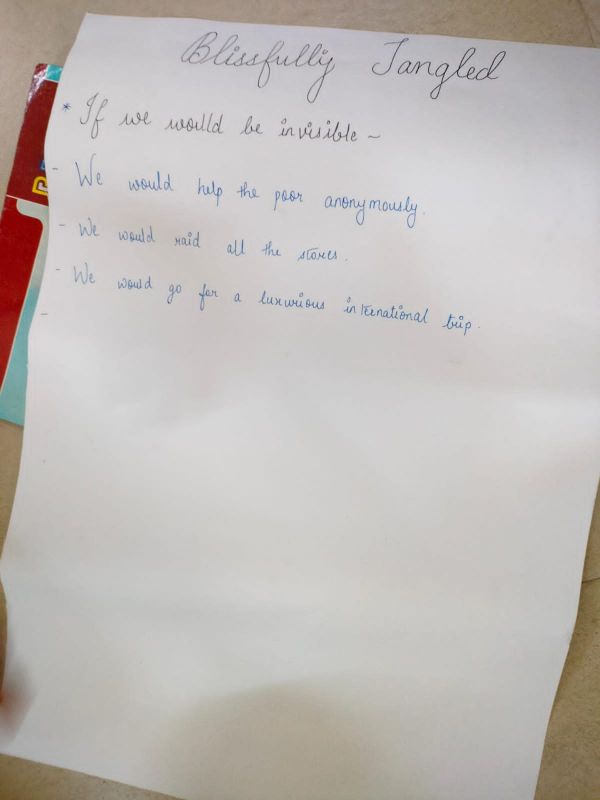 Blissfully Tangled
* If we would be invisible ~
- We would help the poor anonymously.
- We would raid all the stores.
- We would go for a luxurious international trip.
-